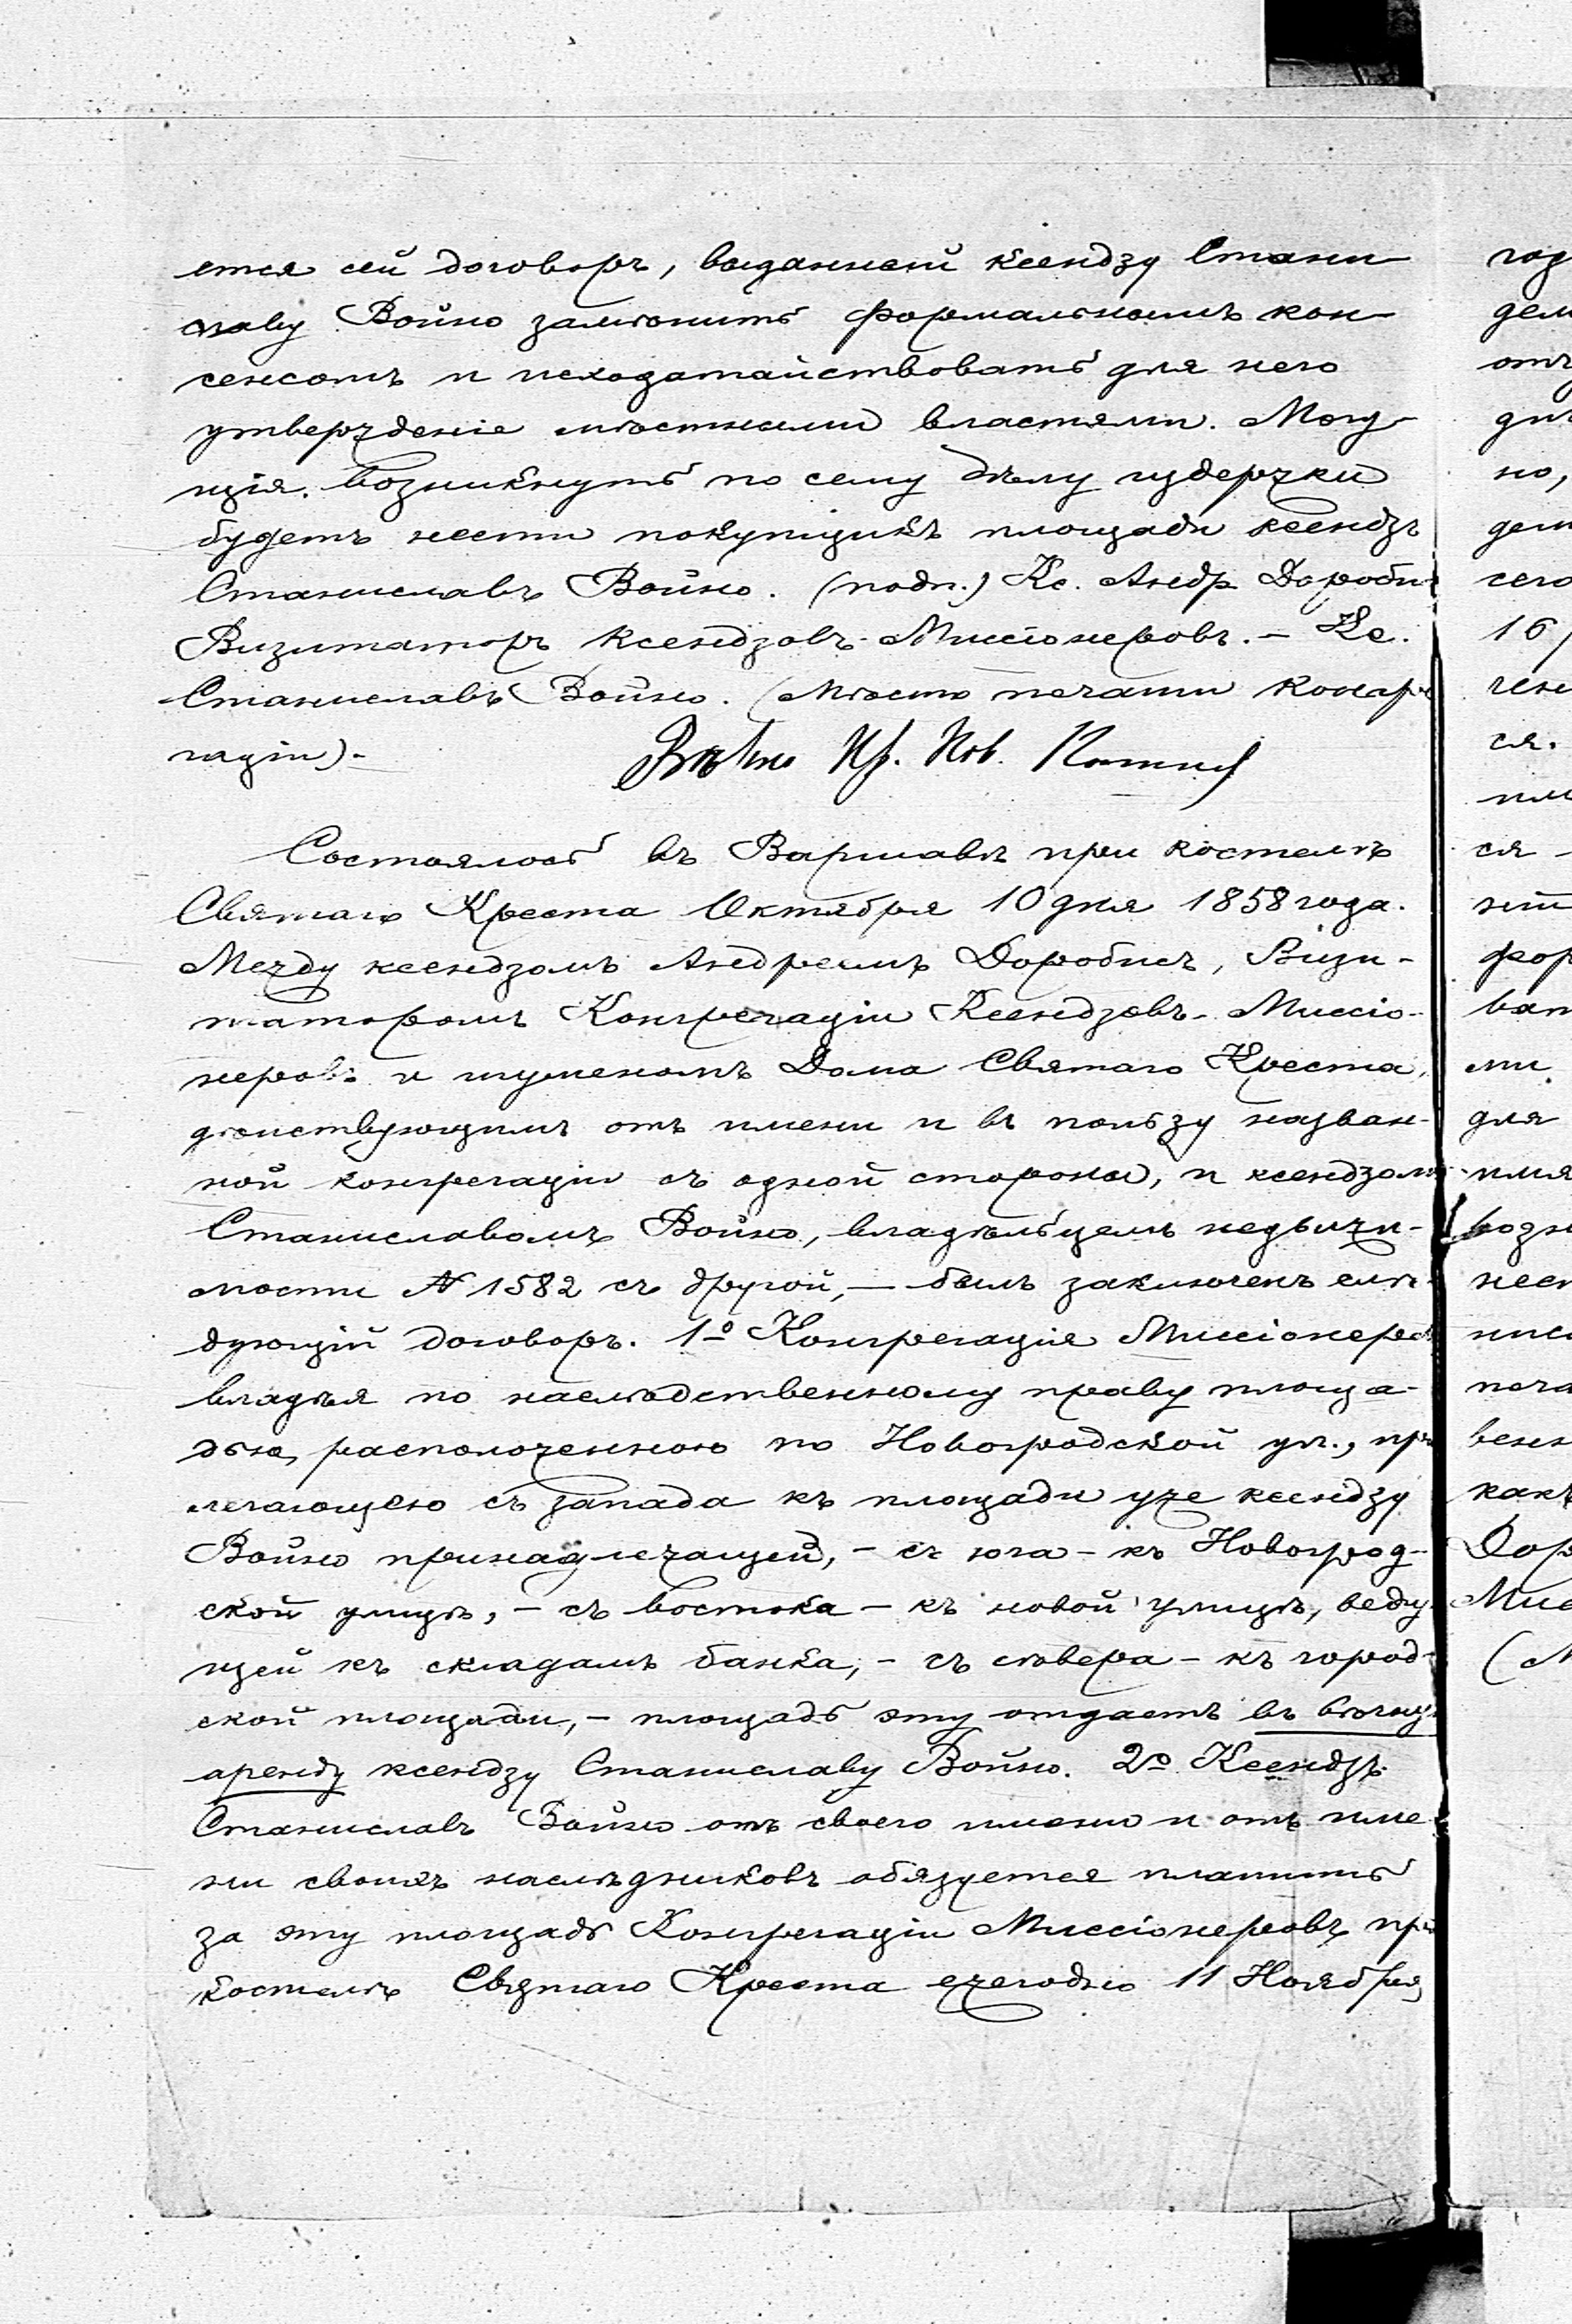 ется сей договоръ, выданный ксендзу Стани-
славу Войно замѣнить формальнымъ кон-
сенсомъ и исходатайствовать для него
утвержденіе мѣстными властями. Могу-
щія возникнуть по сему дѣлу издержки
будетъ нести покупщикъ площади ксендзъ
Станиславъ Войно. (подп.) Кс. Андр. Доробис
Визитаторъ Ксендзовъ-Миссіонеровъ. – Кс.
Станиславъ Войно. (Мѣсто печати Конгре
гаціи).-
Вѣрно
Состоялось въ Варшавѣ при костелѣ
Святаго Креста Октября 10 дня 1858 года.
Между ксендзомъ Андреемъ Доробисъ, Визи-
таторомъ Конгрегаціи Ксендзовъ-Миссіо-
неровъ и игуменомъ Дома Святаго Креста,
дѣйствующимъ отъ имени и въ пользу назван-
ной конгрегаціи съ одной стороны, и ксендзомъ
Станиславомъ Войно, владѣльцемъ недвижи-
мости № 1582 съ другой, – былъ заключенъ слѣ-
дующій договоръ. 1º Конгрегація Миссіонеровъ
владѣя по наслѣдственному праву площа-
дью, расположенною по Новогродской ул., при
легающею съ запада къ площади уже ксендзу
Войно принадлежащей, – съ юга – къ Новогрод-
ской улицѣ, – съ востока – къ новой улицѣ, веду-
щей къ складамъ банка, – съ сѣвера – къ город-
ской площади, – площадь эту отдаетъ въ вѣчную
аренду ксендзу Станиславу Войно. 2º Ксендзъ
Станиславъ Войно отъ своего имени и отъ име-
ни своихъ наслѣдниковъ обязуется платить
за эту площадь Конгрегаціи Миссіонеровъ при
костелѣ Святаго Креста ежегодно 11 Ноября,